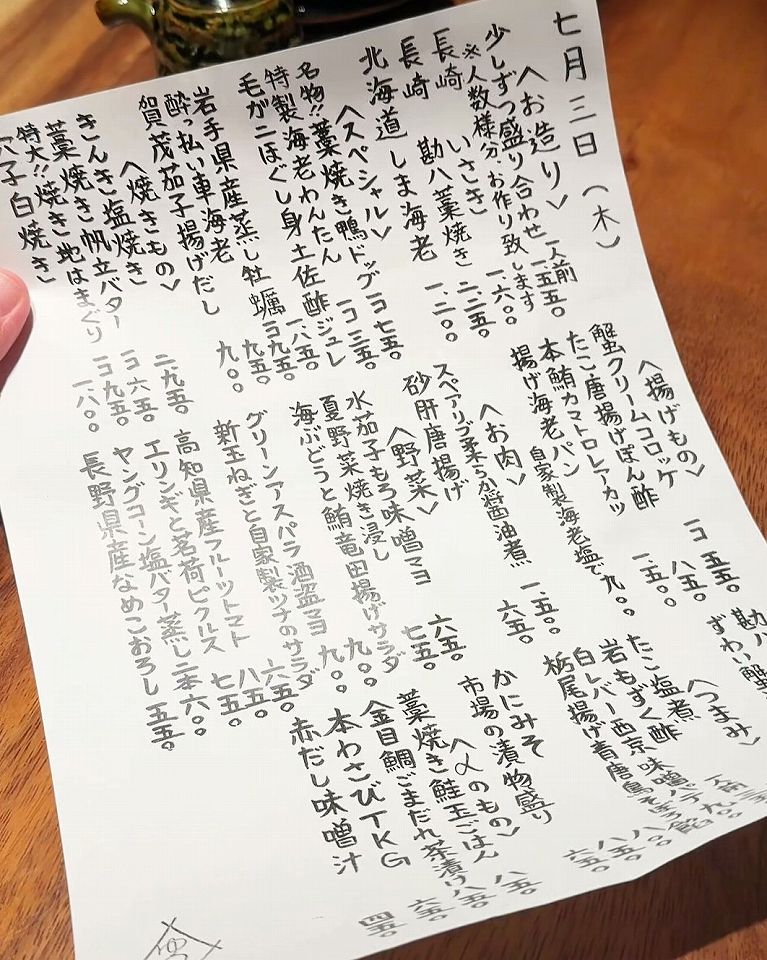 七月三日(木)
〈お造り〉
少しずつ盛り合わせ 一人前 一五五〇
※人数様分、お作り致します
長崎 いさき 一六〇〇
長崎 勘八藁焼き
北海道 しま海老 一二〇〇
〈スペシャル〉
名物!!藁焼き鴨ドッグ 一コ七五〇
特製海老わんたん 一コ三五〇
毛がニほぐし身土佐酢ジュレ 一八五〇
岩手県産蒸し牡蠣 一コ九五〇
酔っ払い車海老 九五〇
賀茂茄子揚げだし 九〇〇
〈焼きもの〉
きんき塩焼き 二、九五〇
藁焼き帆立バター 一コ六五〇
特大!!焼き地はまぐり 一コ九五〇
穴子白焼き 一八〇〇
〈揚げもの〉
蟹クリームコロッケ 一コ五五〇
たこ唐揚げぽん酢 八五〇
本鮪カマトロレアカツ 一、五〇〇
揚げ海老パン 自家製海老塩で 九〇〇
〈お肉〉
スペアリブ柔らか醤油煮 一、五〇〇
砂肝唐揚げ 六五〇
〈野菜〉
水茄子もろ味噌マヨ 六五〇
夏野菜焼き浸し 七五〇
海ぶどうと鮪竜田揚げサラダ 九〇〇
グリーンアスパラ酒盗マヨ 九〇〇
新玉ねぎと自家製ツナのサラダ 六五〇
高知県産フルーツトマト 八五〇
エリンギと茗荷ピクルス 七五〇
ヤングコーン塩バター蒸し 二本六〇〇
長野県産なめこおろし 五五〇
勘八
ずわい蟹
〈つまみ〉
たこ塩煮
岩もずく酢
白レバー西京味噌パテ
栃尾揚げ青唐
かにみそ
市場の漬物盛り
〈〆のもの〉
藁焼き鮭玉ごはん
金目鯛ごまだれ茶漬け
本わさびTKG
赤だし味噌汁 四五〇